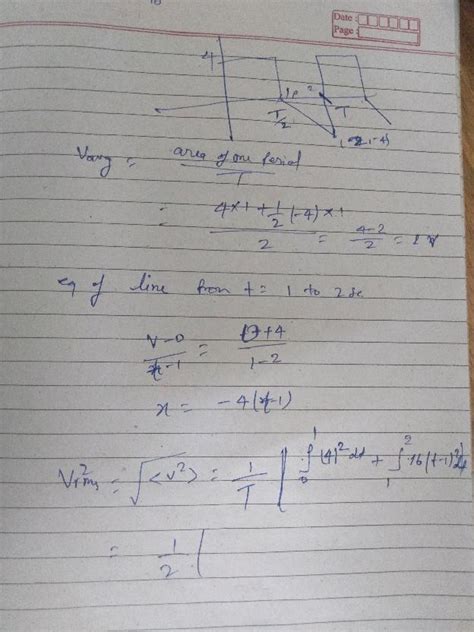 Date :
Page :
4
T/2
T
Vavg = area of one period / T
= 4 × 1 + 1/2 (-4) × 1 / 2 = 4-2 / 2 = 1 V
eq of line from t = 1 to 2 se
V-0 / t-1 = 0+4 / 1-2
x = -4(t-1)
V²rms = √<v²> = 1/T [ ∫₀¹ (4)² dt + ∫₁² 16(t-1)² dt
= 1/2 (